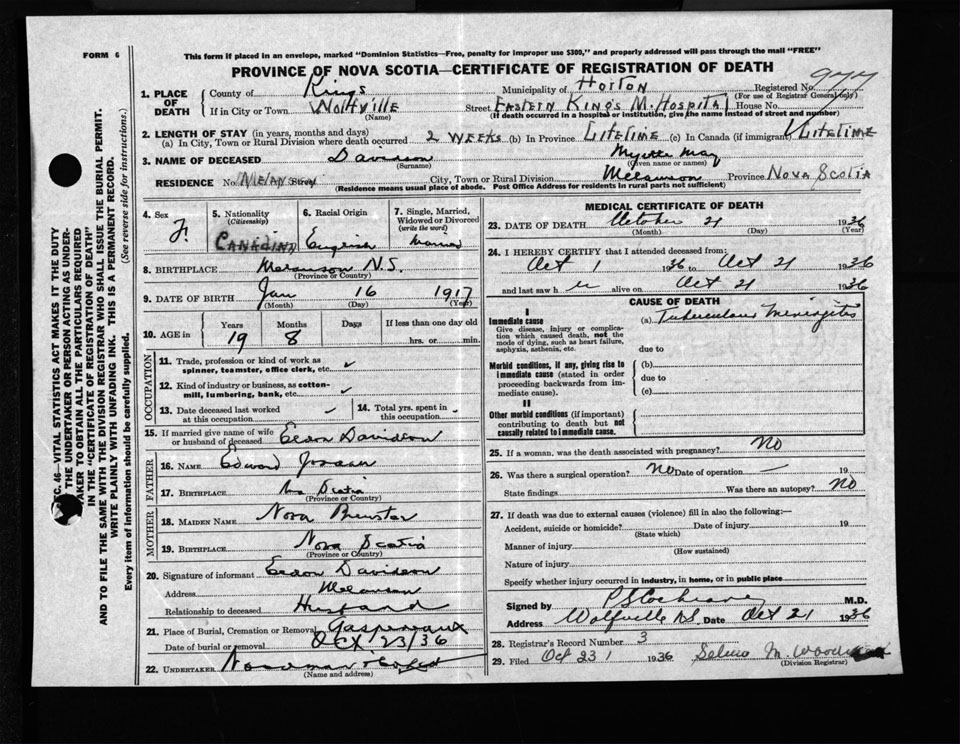 FORM 6
This form if placed in an envelope, marked "Dominion Statistics—Free, penalty for improper use $300," and properly addressed will pass through the mail "FREE"
PROVINCE OF NOVA SCOTIA—CERTIFICATE OF REGISTRATION OF DEATH
SEC. 46—VITAL STATISTICS ACT MAKES IT THE DUTY
THE UNDERTAKER OR PERSON ACTING AS UNDER-
TAKER TO OBTAIN ALL THE PARTICULARS REQUIRED
IN THE "CERTIFICATE OF REGISTRATION OF DEATH"
AND TO FILE THE SAME WITH THE DIVISION REGISTRAR WHO SHALL ISSUE THE BURIAL PERMIT.
WRITE PLAINLY WITH UNFADING INK. THIS IS A PERMANENT RECORD.
Every item of information should be carefully supplied. (See reverse side for instructions.)
1. PLACE OF DEATH County of Kings Municipality of Horton Registered No.
(For use of Registrar General only)
If in City or Town Wolfville Street Eastern King's M. Hospital House No.
(Name) (If death occurred in a hospital or institution, give the name instead of street and number)
2. LENGTH OF STAY (in years, months and days)
(a) In City, Town or Rural Division where death occurred 2 WEEKS (b) In Province LifeTIME (c) In Canada (if immigrant) LifeTIME
3. NAME OF DECEASED Davidson Myrtle May
(Surname) (Given name or names)
RESIDENCE No. Street City, Town or Rural Division Melanson Province NOVA SCOTIA
(Residence means usual place of abode. Post Office Address for residents in rural parts not sufficient)
4. Sex F.
5. Nationality (Citizenship) CANADIAN
6. Racial Origin English
7. Single, Married, Widowed or Divorced (write the word) Married
8. BIRTHPLACE Melanson N.S.
(Province or Country)
9. DATE OF BIRTH Jan 16 1917
(Month) (Day) (Year)
10. AGE in Years 19 Months 8 Days If less than one day old hrs. or min.
OCCUPATION
11. Trade, profession or kind of work as spinner, teamster, office clerk, etc. ✓
12. Kind of industry or business, as cotton-mill, lumbering, bank, etc. ✓
13. Date deceased last worked at this occupation ✓ 14. Total yrs. spent in this occupation
15. If married give name of wife or husband of deceased Eldon Davidson
FATHER
16. NAME Edward
17. BIRTHPLACE Scotia
(Province or Country)
MOTHER
18. MAIDEN NAME Nora Brewster
19. BIRTHPLACE Nova Scotia
(Province or Country)
20. Signature of informant Eldon Davidson
Address Melanson
Relationship to deceased Husband
21. Place of Burial, Cremation or Removal Gaspereaux
Date of burial or removal Oct 23/36
22. UNDERTAKER
(Name and address)
MEDICAL CERTIFICATE OF DEATH
23. DATE OF DEATH October 21 1936
(Month) (Day) (Year)
24. I HEREBY CERTIFY that I attended deceased from:
Oct 1 1936 to Oct 21 1936
and last saw h er alive on Oct 21 1936
CAUSE OF DEATH
I
Immediate cause
Give disease, injury or complication which caused death, not the mode of dying, such as heart failure, asphyxia, asthenia, etc.
(a) Tuberculous Meningitis
due to
Morbid conditions, if any, giving rise to immediate cause (stated in order proceeding backwards from immediate cause).
(b)
due to
(c)
II
Other morbid conditions (if important) contributing to death but not causally related to immediate cause.
25. If a woman, was the death associated with pregnancy? NO
26. Was there a surgical operation? NO Date of operation — 19
State findings Was there an autopsy? NO
27. If death was due to external causes (violence) fill in also the following:—
Accident, suicide or homicide? Date of injury 19
(State which)
Manner of injury
(How sustained)
Nature of injury
Specify whether injury occurred in industry, in home, or in public place
Signed by P S Cochrane M.D.
Address Wolfville N.S. Date Oct 21 1936
28. Registrar's Record Number 3
29. Filed Oct 23 1936 M. Woodman
(Division Registrar)